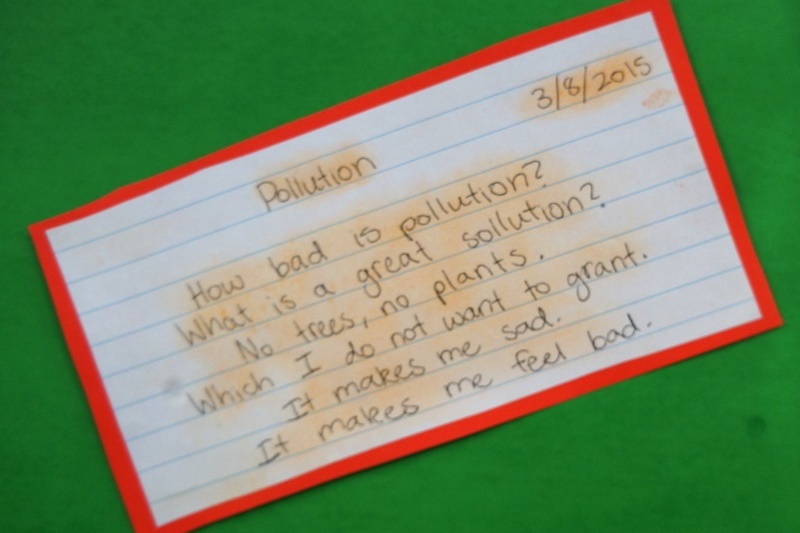 3/8/2015
Pollution
How bad is pollution?
What is a great sollution?
No trees, no plants.
Which I do not want to grant.
It makes me sad.
It makes me feel bad.